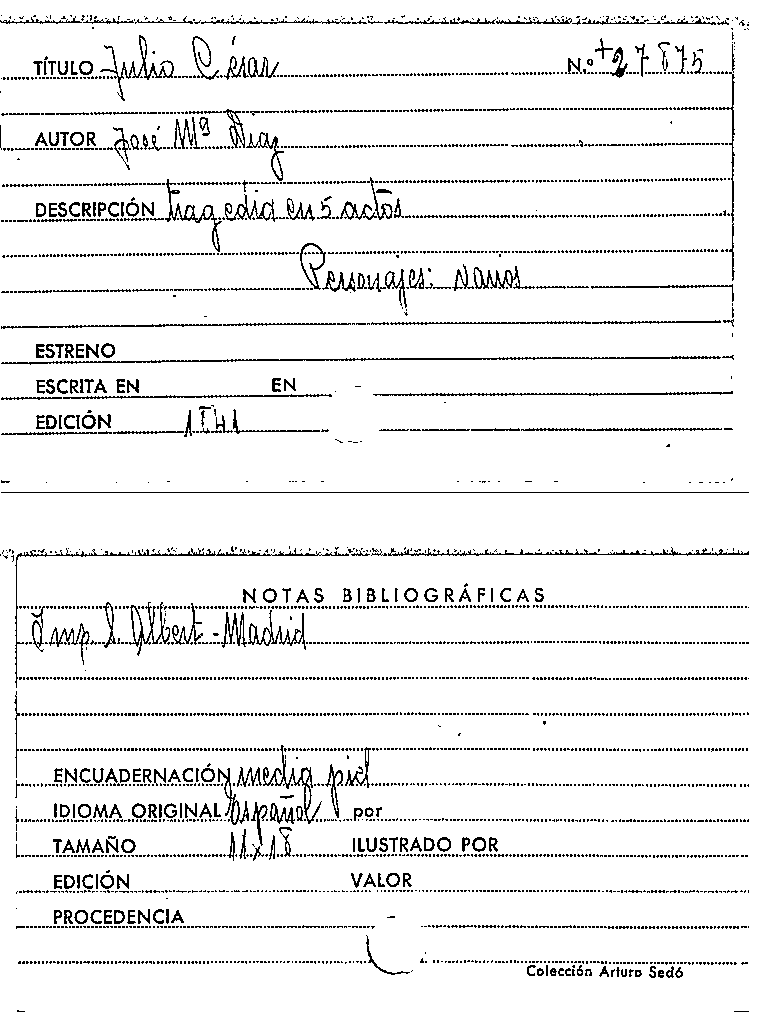 TÍTULO Julio César N.º +27875
AUTOR José Mª Díaz
DESCRIPCIÓN tragedia en 5 actos
Personajes: varios
ESTRENO
ESCRITA EN EN
EDICIÓN 1841
NOTAS BIBLIOGRÁFICAS
Imp. S. Albert - Madrid
ENCUADERNACIÓN media piel
IDIOMA ORIGINAL Español por
TAMAÑO 11x18 ILUSTRADO POR
EDICIÓN VALOR
PROCEDENCIA
Colección Arturo Sedó